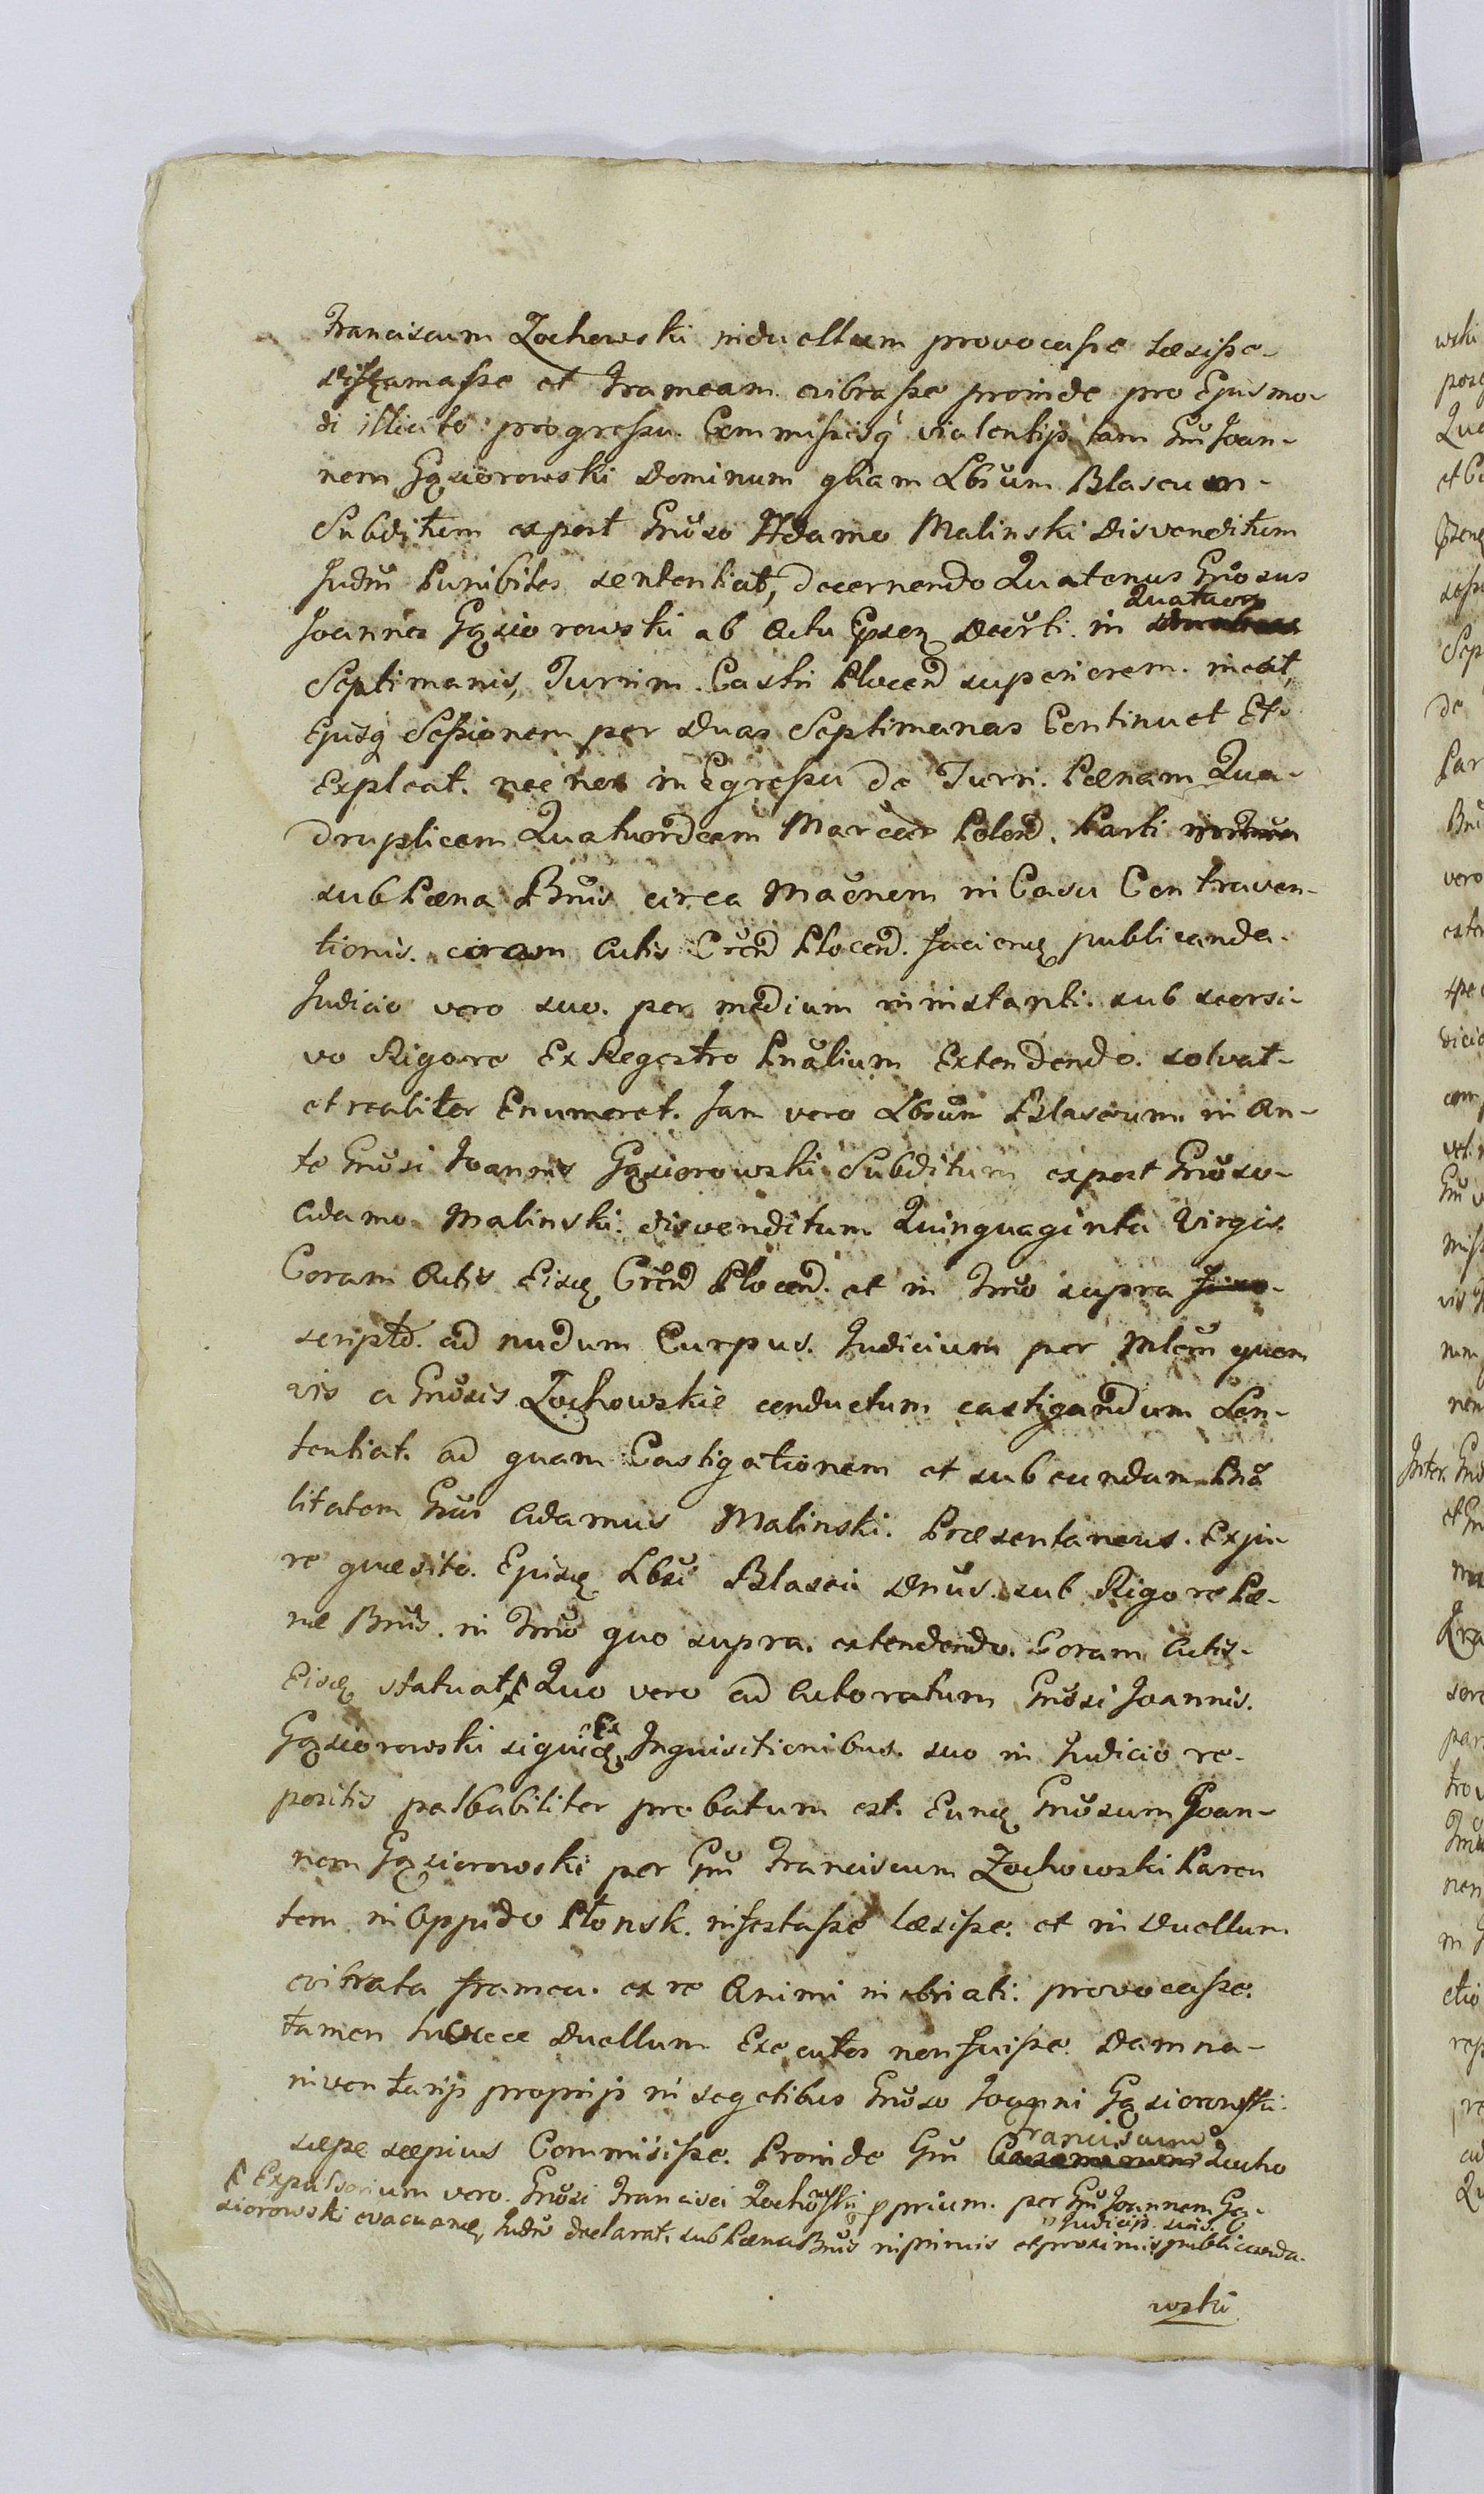 Franciscum Zochowski induellum provocasse læsisse
diffamasse et Frameam evibrasse proinde pro Ejusmo-
di illicito progressu Commissisq violentijs tam Gnũ Joan-
nem Gąsiorowski Dominum qũam Lbrũm Blascum
Subditum expost Gnũso Adamo Malinski disvenditum
Judm̃ Punibiles sententiat, decernendo Quatenus Gnũosus
Joannes Gąsiorowski ab Actu Ejsdẽ Decr̃ti in Quatuor
Septimanis, Turrim Castri Plocen̄ superiorem ineat,
Ejusq Sessionem per duas Septimanas Continuet Et
Expleat. nec non in Egressu de Turri. Pænam Qua-
druplicem Quatuordecim Marcar̃ Polon̄. Parti
sub Pæna Bnis circa Maõnem in Casu Contraven-
tionis. coram Actis Cren̄ Plocen̄. faciend publicanda.
Judicio vero suo. per medium ministanti. sub seorsi-
vo Rigore Ex Regestro Pnalium Extendendo. solvat
et realiter Enumeret. Jam vero Lbrũm Blascum in An-
te Gnũsi Joannis Gąsiorowski Subditum expost Gnũso
Adamo Malinski. disvenditum Quinquaginta Virgis
Coram Actis Eisd Cren̄ Plocen̄ et in Tmõ supra
script̄o. ad nudum Curpus. Judicium per Mlem̃ quem
vis a Gnũsis Zochowskie conductum castigandum Sen-
tentiat. ad quam Castigationem et sub eundam Pnã
litatem Gnũs Adamus Malinski. Præsentaneus. Ex ju-
re quæsito. Ejusd Lbri Blascii Dnũs. sub Rigore Pæ-
næ Bnis. in Tmõ quo supra. extendendo. Coram Actis
Eisd statuat, Quo vero ad Actoratum Gnũsi Joannis.
Gąsiorowski siquid Ex Inquisitionibus. suo in Judicio re-
positis palbabiliter probatum est. Eund Gnũsum Joan-
nem Gąsiorowski per Gnũ Franciscum Zochowski Paren
tem in Oppido Płonsk. infestasse læsisse. et in Duellum
evibrata framea. ex re Animi inebriati. provocasse.
tamen Duellum Executos non fuisse. Damna-
inventarijs proprijs in segetibus Gnũso Joanni Gąsiorowski
sæpe sæpius Commisisse. Proinde Gnũ Franciscum Zocho
Expulsorium vero. Gnũsi Francisci Zochowski pprium. per Gnũ Joannem Gą-
siorowski evacuand, Judm̃ declarat. sub Pæna Bnis inprimis et proximis Judicijs suis. publicanda.
wski